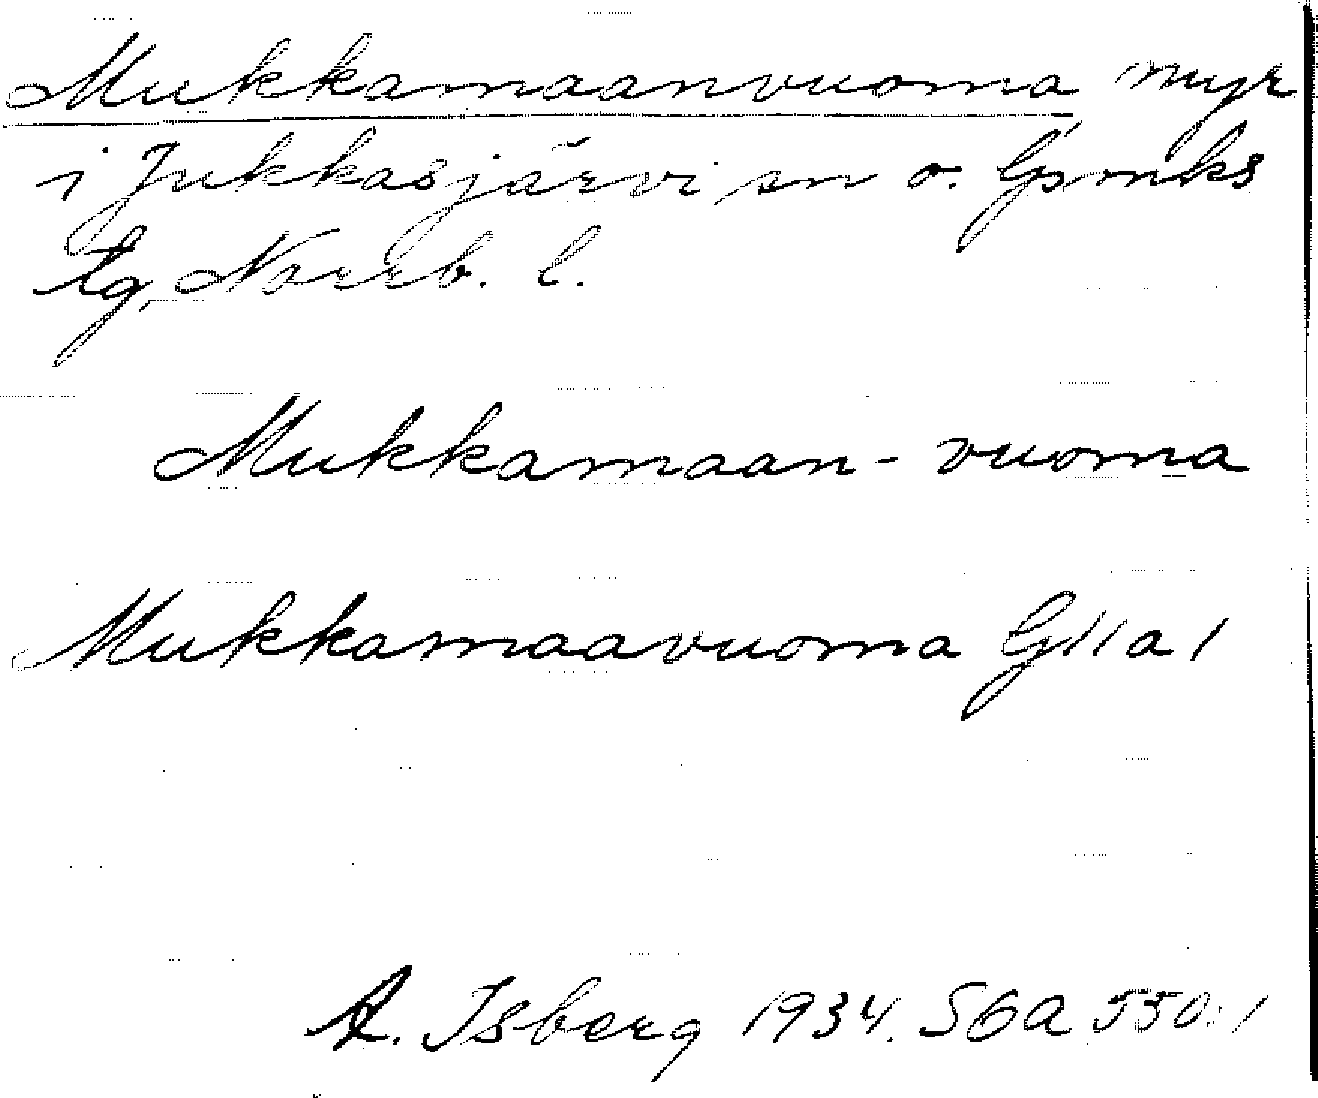 Mukkamaanvuoma myr
i Jukkasjärvi sn o. Gsmks
tg, Norrb. l.
Mukkamaan-vuoma
Mukkamaavuoma G11a1
A. Isberg 1934. SGA 550:1